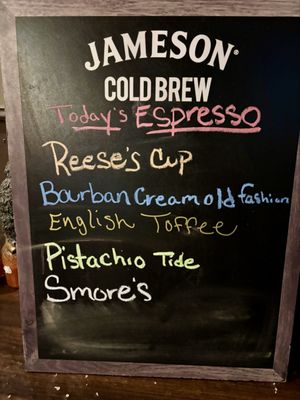 JAMESON
COLD BREW
Today's Espresso
Reese's Cup
Bourban Cream old fashion
English Toffee
Pistachio Tide
Smore's